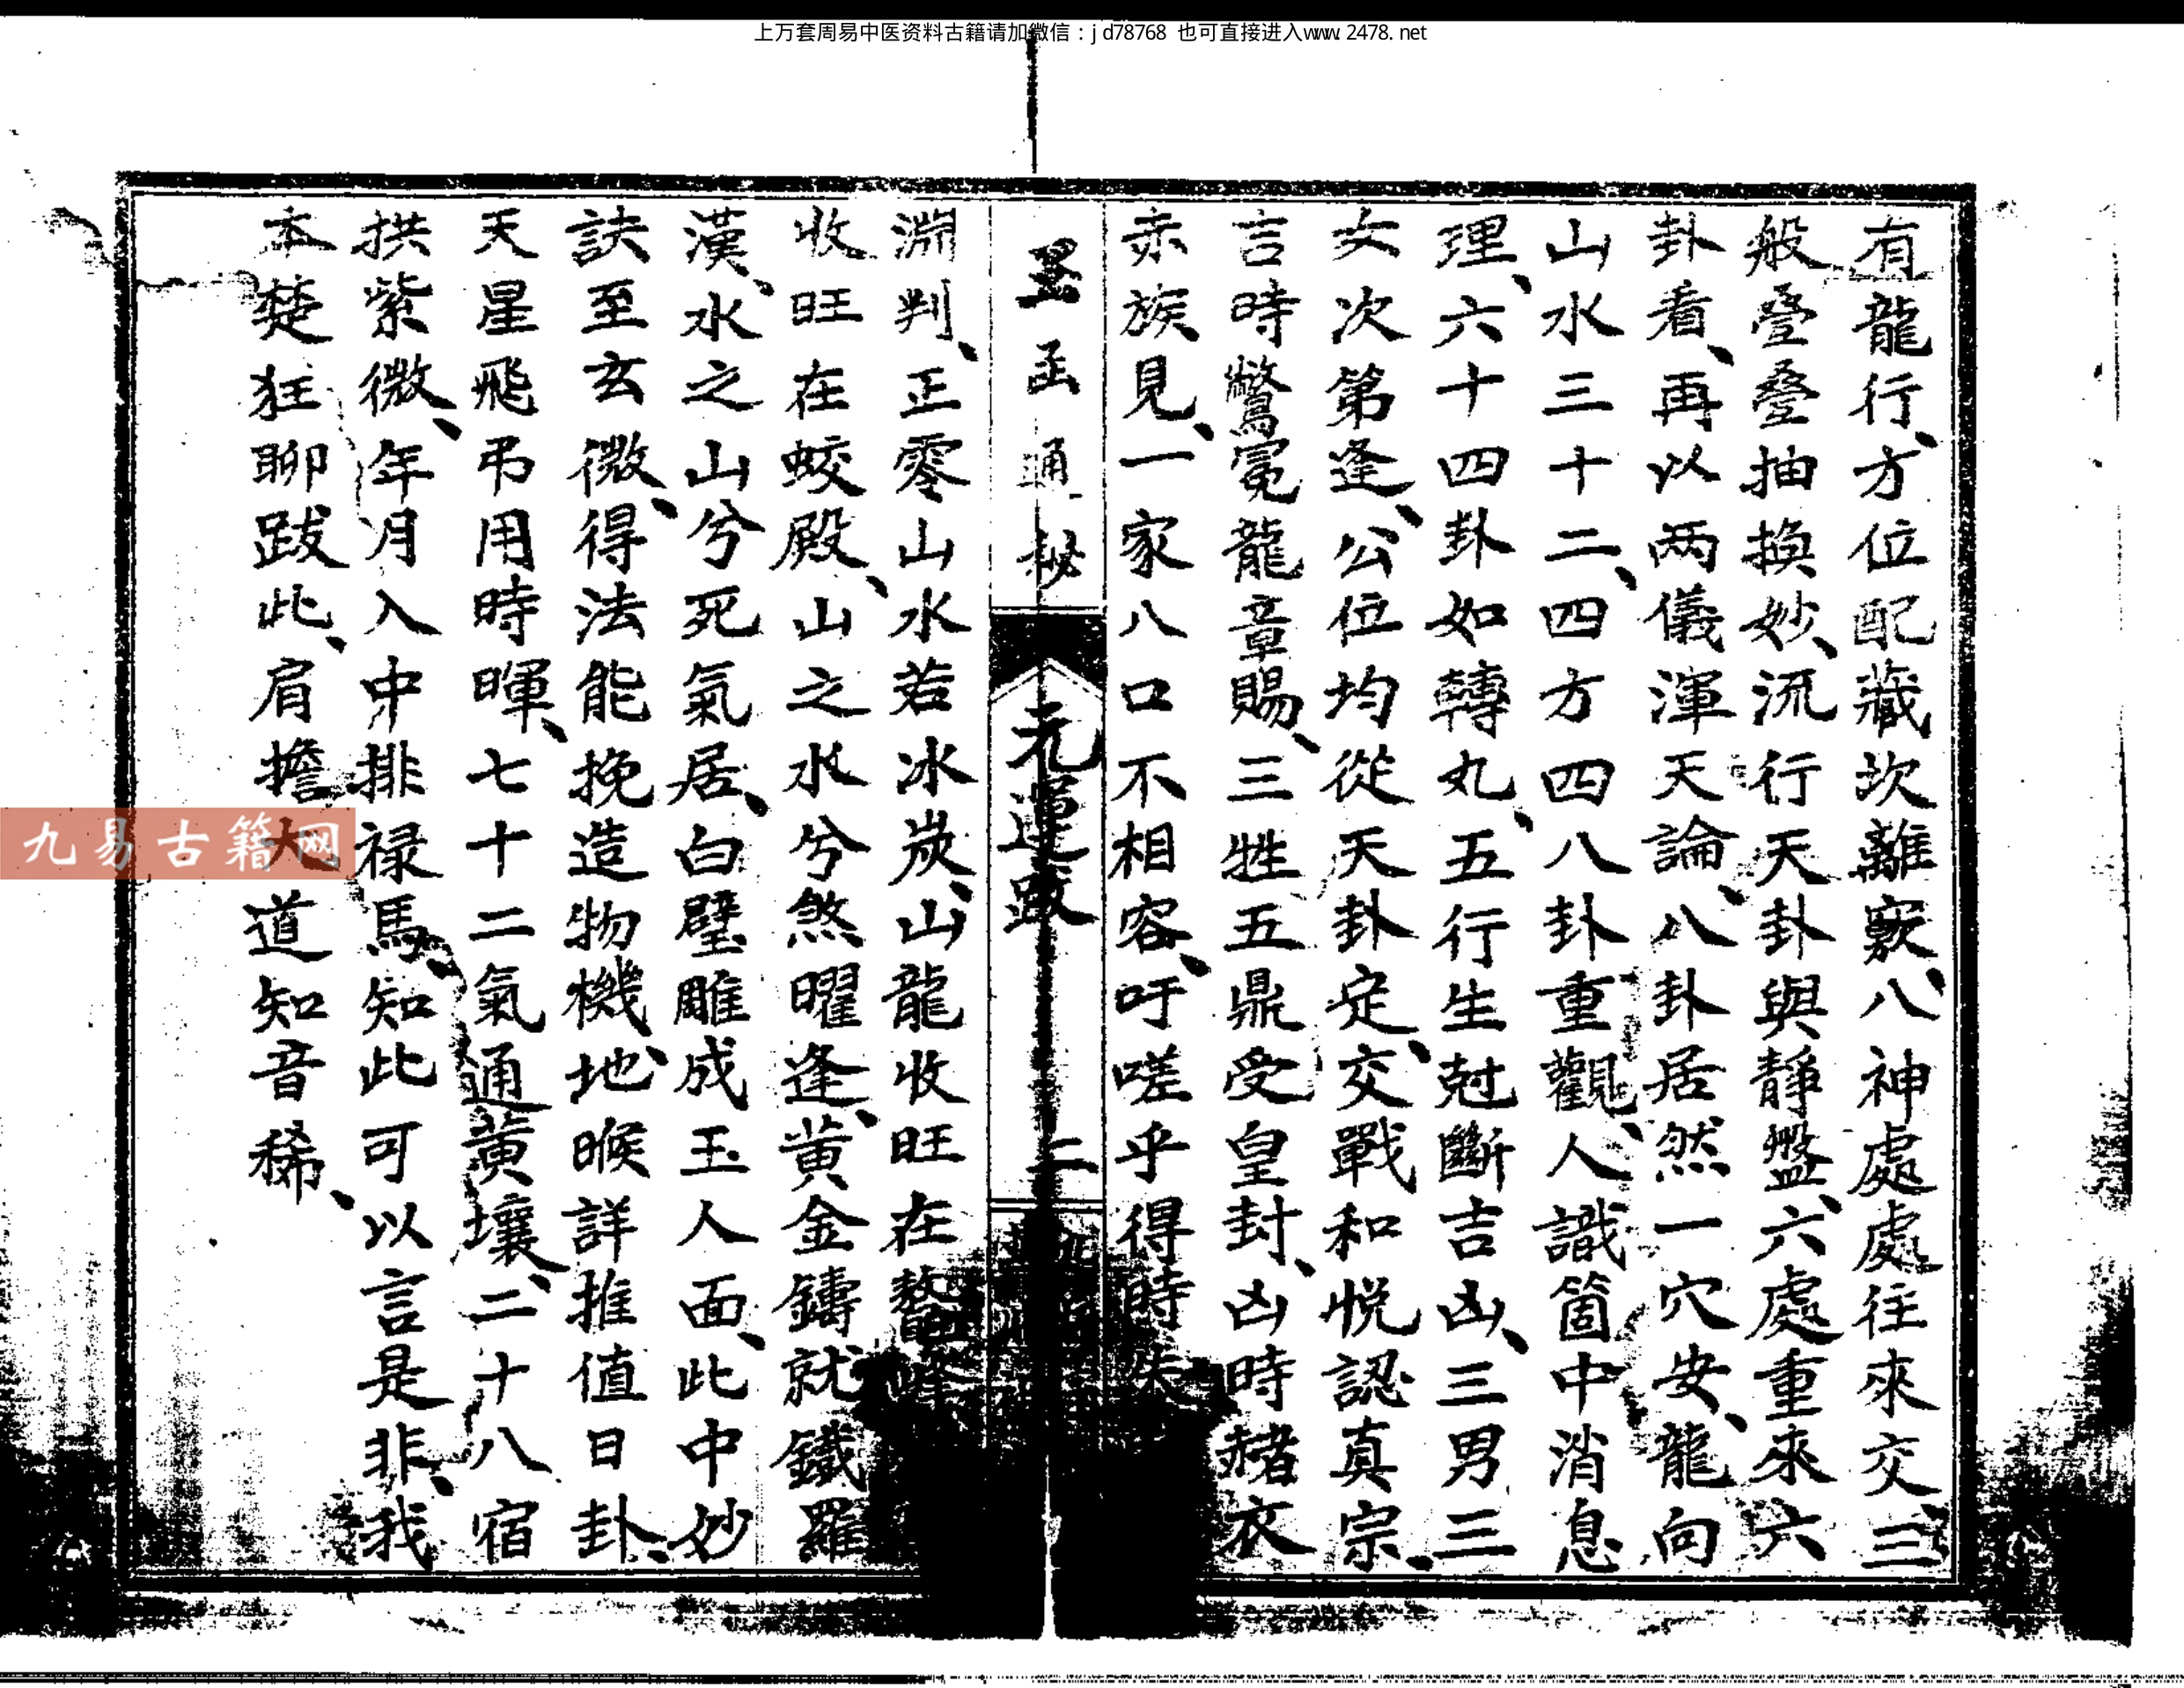 上万套周易中医资料古籍请加微信：jd78768 也可直接进入www.2478.net
有龍行、方位配藏坎離竅、八神處處往來交、三
般疊疊抽換妙、流行天卦與靜盤、六處重來六
卦看、再以两儀渾天論、八卦居然一穴安、龍向
山水三十二、四方四八卦重觀、人識箇中消息
理、六十四卦如轉丸、五行生尅斷吉凶、三男三
女次第逢、公位均從天卦定、交戰和悦認真宗、
言時驚冕龍章賜、三牲五鼎受皇封、凶時赭衣
赤族見、一家八口不相容、吁嗟乎得時失
通秘
元運
二
淵判、正零山水若冰炭、山龍收旺在鰲峰
收旺在蛟殿、山之水兮煞曜逢、黄金鑄就鐵羅
漢、水之山兮死氣居、白璧雕成玉人面、此中妙
訣至玄微、得法能挽造物機、地睺詳推值日卦、
天星飛弔用時暉、七十二氣通黄壤、二十八宿
拱紫微、年月入中排禄馬、知此可以言是非、我
本楚狂聊跋此、肩擔大道知音稀、
九易古籍网